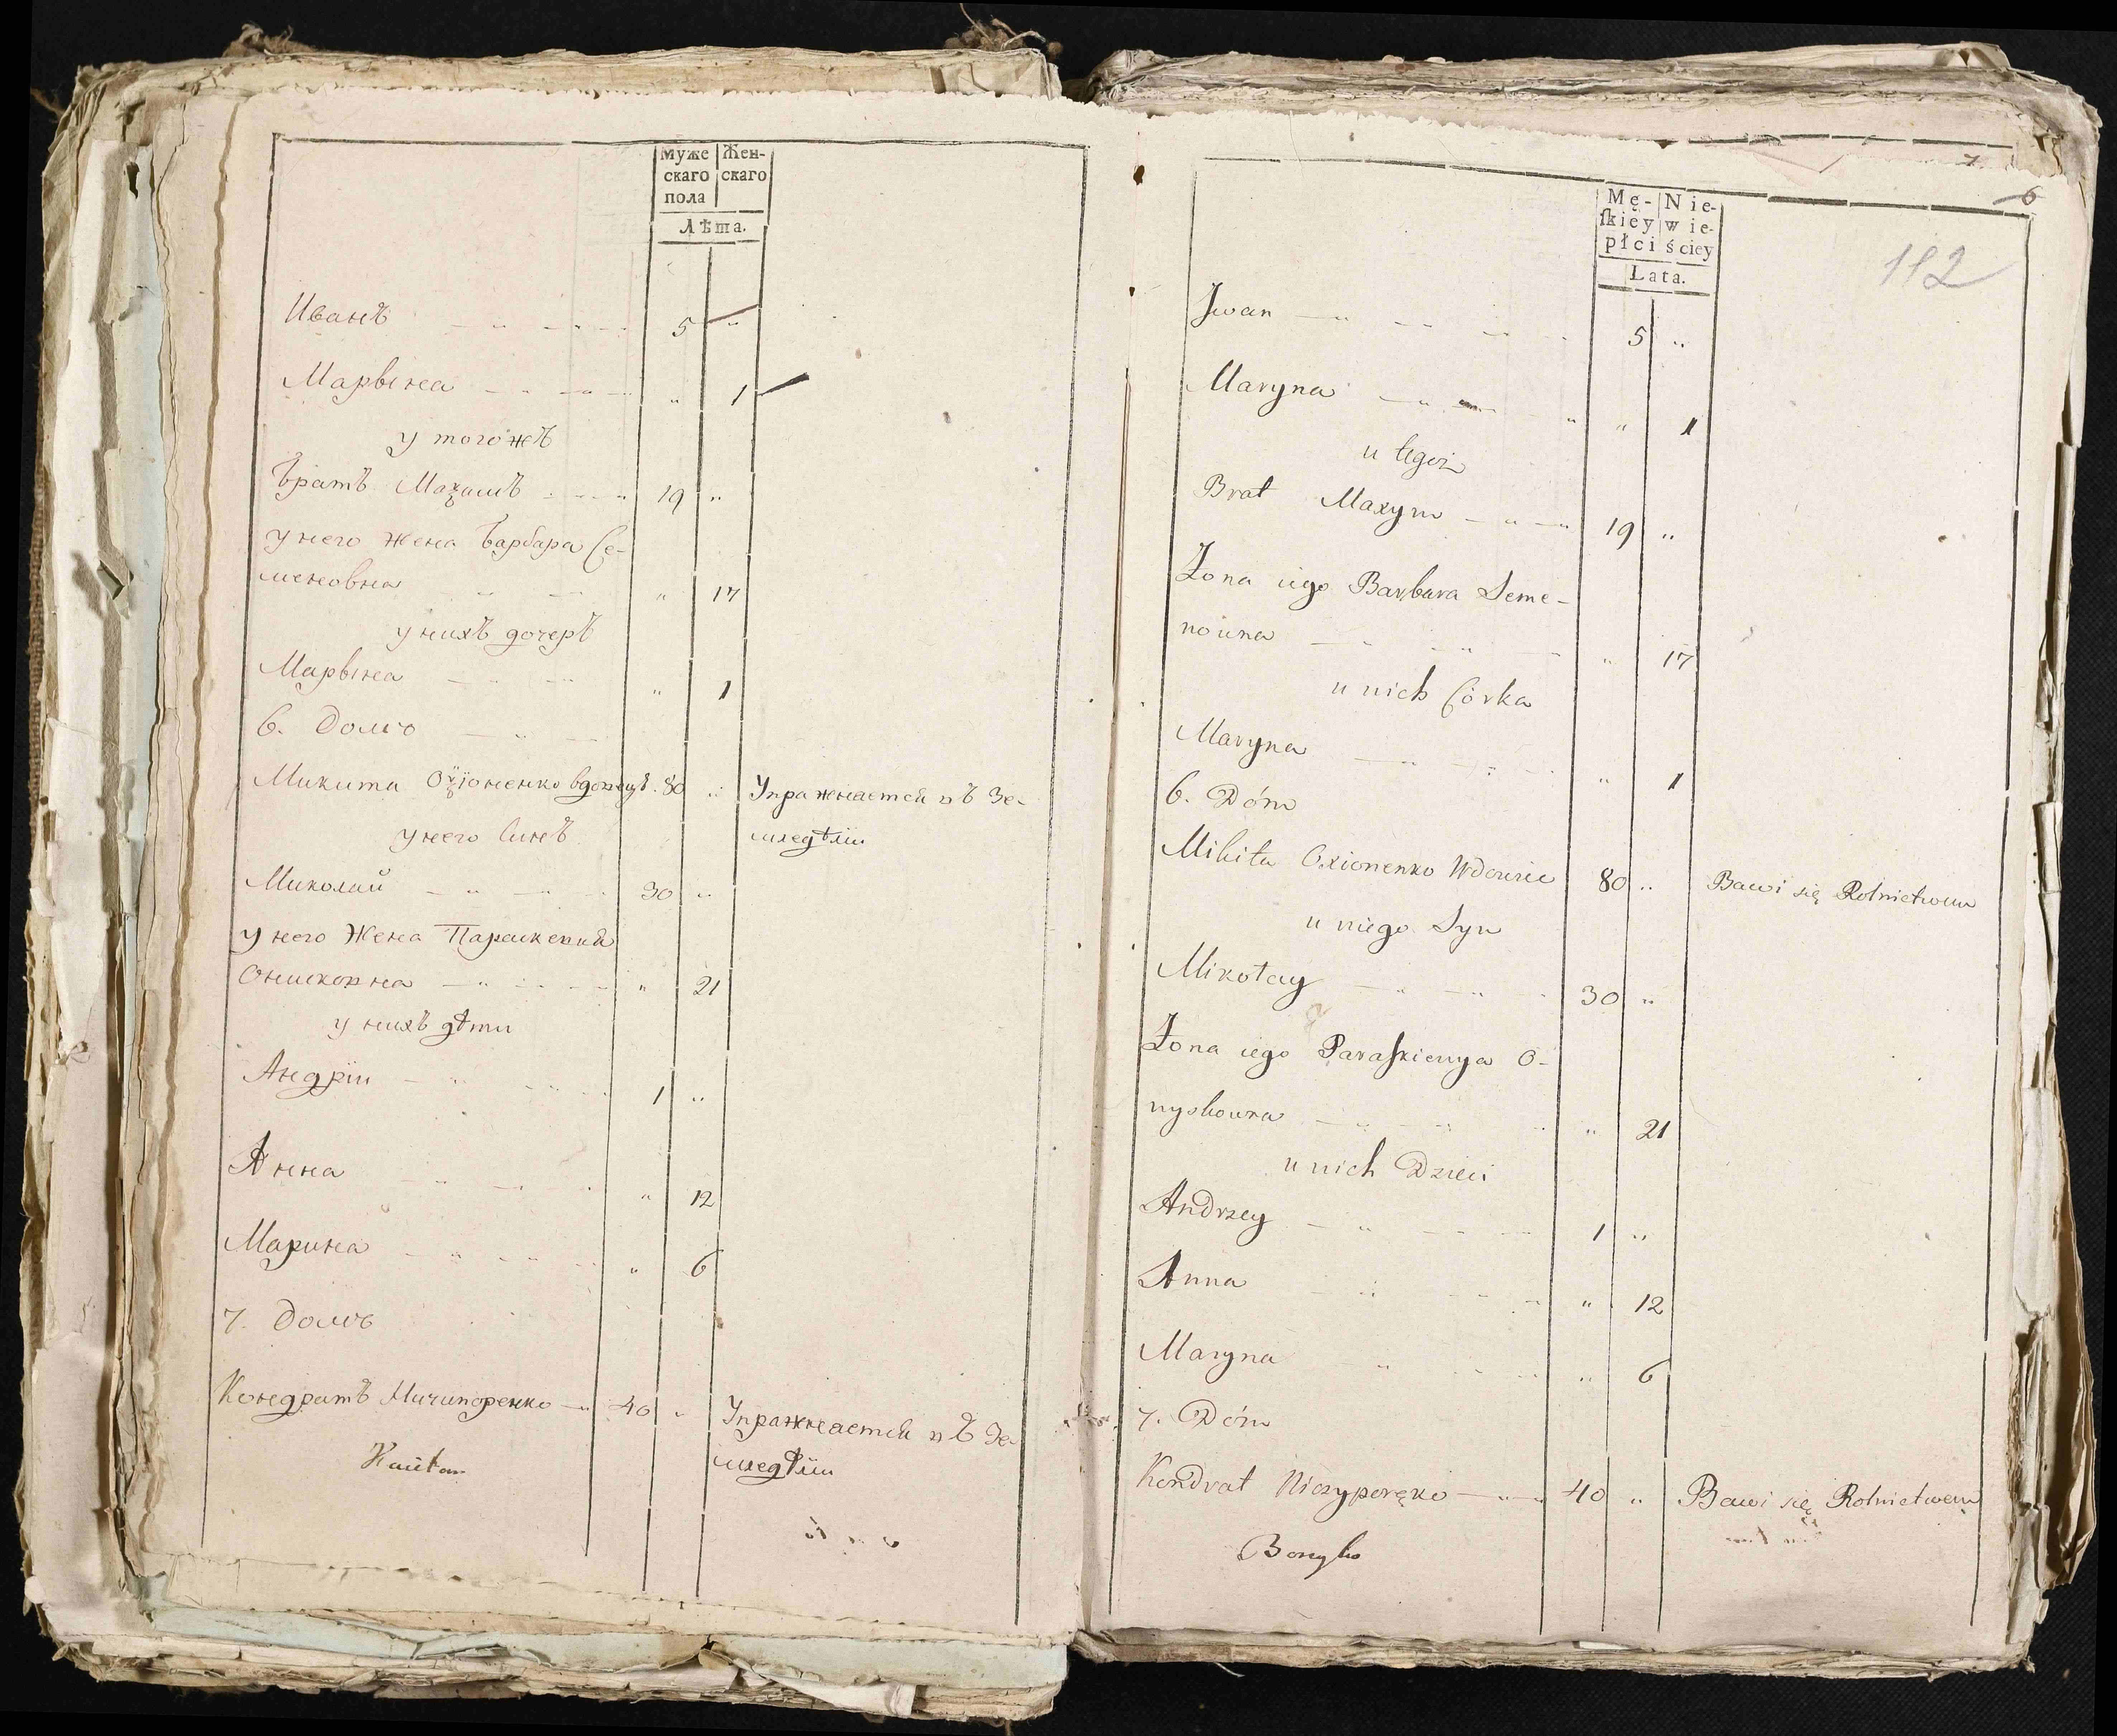 Муже Жен-
скаго скаго
пола
Лѣта.
Иванъ 5 "
Марына " 1
у того жъ
братъ Маѯимъ 19 "
у него жена Барбара Се-
меновна " 17
у нихъ дочеръ
Марына " 1
6. Домъ
Микита Оѯіоненко вдовецъ 80 " Упражняется въ Зе-
у него Синъ мледѣліи
Миколай 30 "
у него Жена Параскевия
Онисковна " 21
у нихъ дѣти
Андріи 1 "
Анна " 12
Марина " 6
7. Домъ
Кондратъ Ничипоренко 40 " Упражняется въ Зе-
мледѣліи
7
6
112
Mę- Nie-
ſkiey wie-
płci ściey
Lata.
Iwan 5 "
Maryna " 1
u tegoż
Brat Maxym 19 "
Żona iego Barbara Seme-
nowna " 17
u nich Córka
Maryna " 1
6. Dóm
Mikita Oxionenko Wdowiec 80 " Bawi się Rolnictwem
u niego Syn
Mikołay 30 "
Żona iego Paraſkiewya O-
nyskowna " 21
u nich Dzieci
Andrzey 1 "
Anna " 12
Maryna " 6
7. Dóm
Kondrat Niczyporęko 40 " Bawi się Rolnictwem